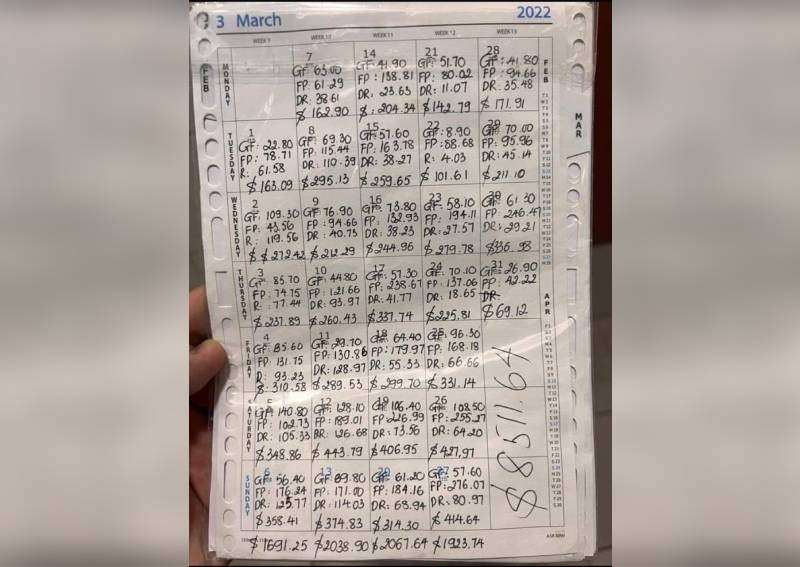 3 March
2022
WEEK 9
WEEK 10
WEEK 11
WEEK 12
WEEK 13
FEB
MONDAY
7
GF: 63.00
FP: 61.29
DR: 38.61
$ 162.90
14
GF: 41.90
FP: 138.81
DR: 23.63
$: 204.34
21
GF: 51.70
FP: 80.02
DR: 11.07
$ 142.79
28
GF: 41.80
FP: 94.66
DR: 35.48
$ 171.91
FEB
MAR
TUESDAY
1
GF: 22.80
FP: 78.71
R: 61.58
$ 163.09
8
GF: 69.30
FP: 115.44
DR: 110.39
$ 295.13
15
GF: 57.60
FP: 163.78
DR: 38.27
$ 259.65
22
GF: 8.90
FP: 88.68
R: 4.03
$ 101.61
29
GF: 70.00
FP: 95.96
DR: 45.14
$ 211.10
WEDNESDAY
2
GF: 109.30
FP: 43.56
R: 119.56
$ 272.42
9
GF: 76.90
FP: 94.66
DR: 40.73
$ 212.29
16
GF: 73.80
FP: 132.93
DR: 38.23
$ 244.96
23
GF: 58.10
FP: 194.11
DR: 27.57
$ 279.78
30
GF: 61.30
FP: 246.47
DR: 29.21
$ 336.98
THURSDAY
3
GF: 85.70
FP: 74.75
R: 77.44
$ 237.89
10
GF: 44.80
FP: 121.66
DR: 93.97
$ 260.43
17
GF: 57.30
FP: 238.67
DR: 41.77
$ 337.74
24
GF: 70.10
FP: 137.06
DR: 18.65
$ 225.81
31
GF: 26.90
FP: 42.22
DR:
$ 69.12
APR
FRIDAY
4
GF: 85.60
FP: 131.75
R: 93.23
$: 310.58
11
GF: 29.70
FP: 130.86
DR: 128.97
$ 289.53
18
GF: 64.40
FP: 179.97
DR: 55.33
$ 299.70
25
GF: 96.30
FP: 168.18
DR: 66.66
$ 331.14
SATURDAY
5
GF: 140.80
FP: 102.73
DR: 105.33
$ 348.86
12
GF: 128.10
FP: 189.01
DR: 126.68
$ 443.79
19
GF: 106.40
FP: 226.99
DR: 73.56
$ 406.95
26
GF: 108.50
FP: 255.27
DR: 64.20
$ 427.97
SUNDAY
6
GF: 56.40
FP: 176.24
DR: 125.77
$ 358.41
13
GF: 89.80
FP: 171.00
DR: 114.03
$ 374.83
20
GF: 61.20
FP: 184.16
DR: 68.94
$ 314.30
27
GF: 57.60
FP: 276.07
DR: 80.97
$ 414.64
$ 8511.64
$ 1691.25
$ 2038.90
$ 2067.64
$ 1923.74